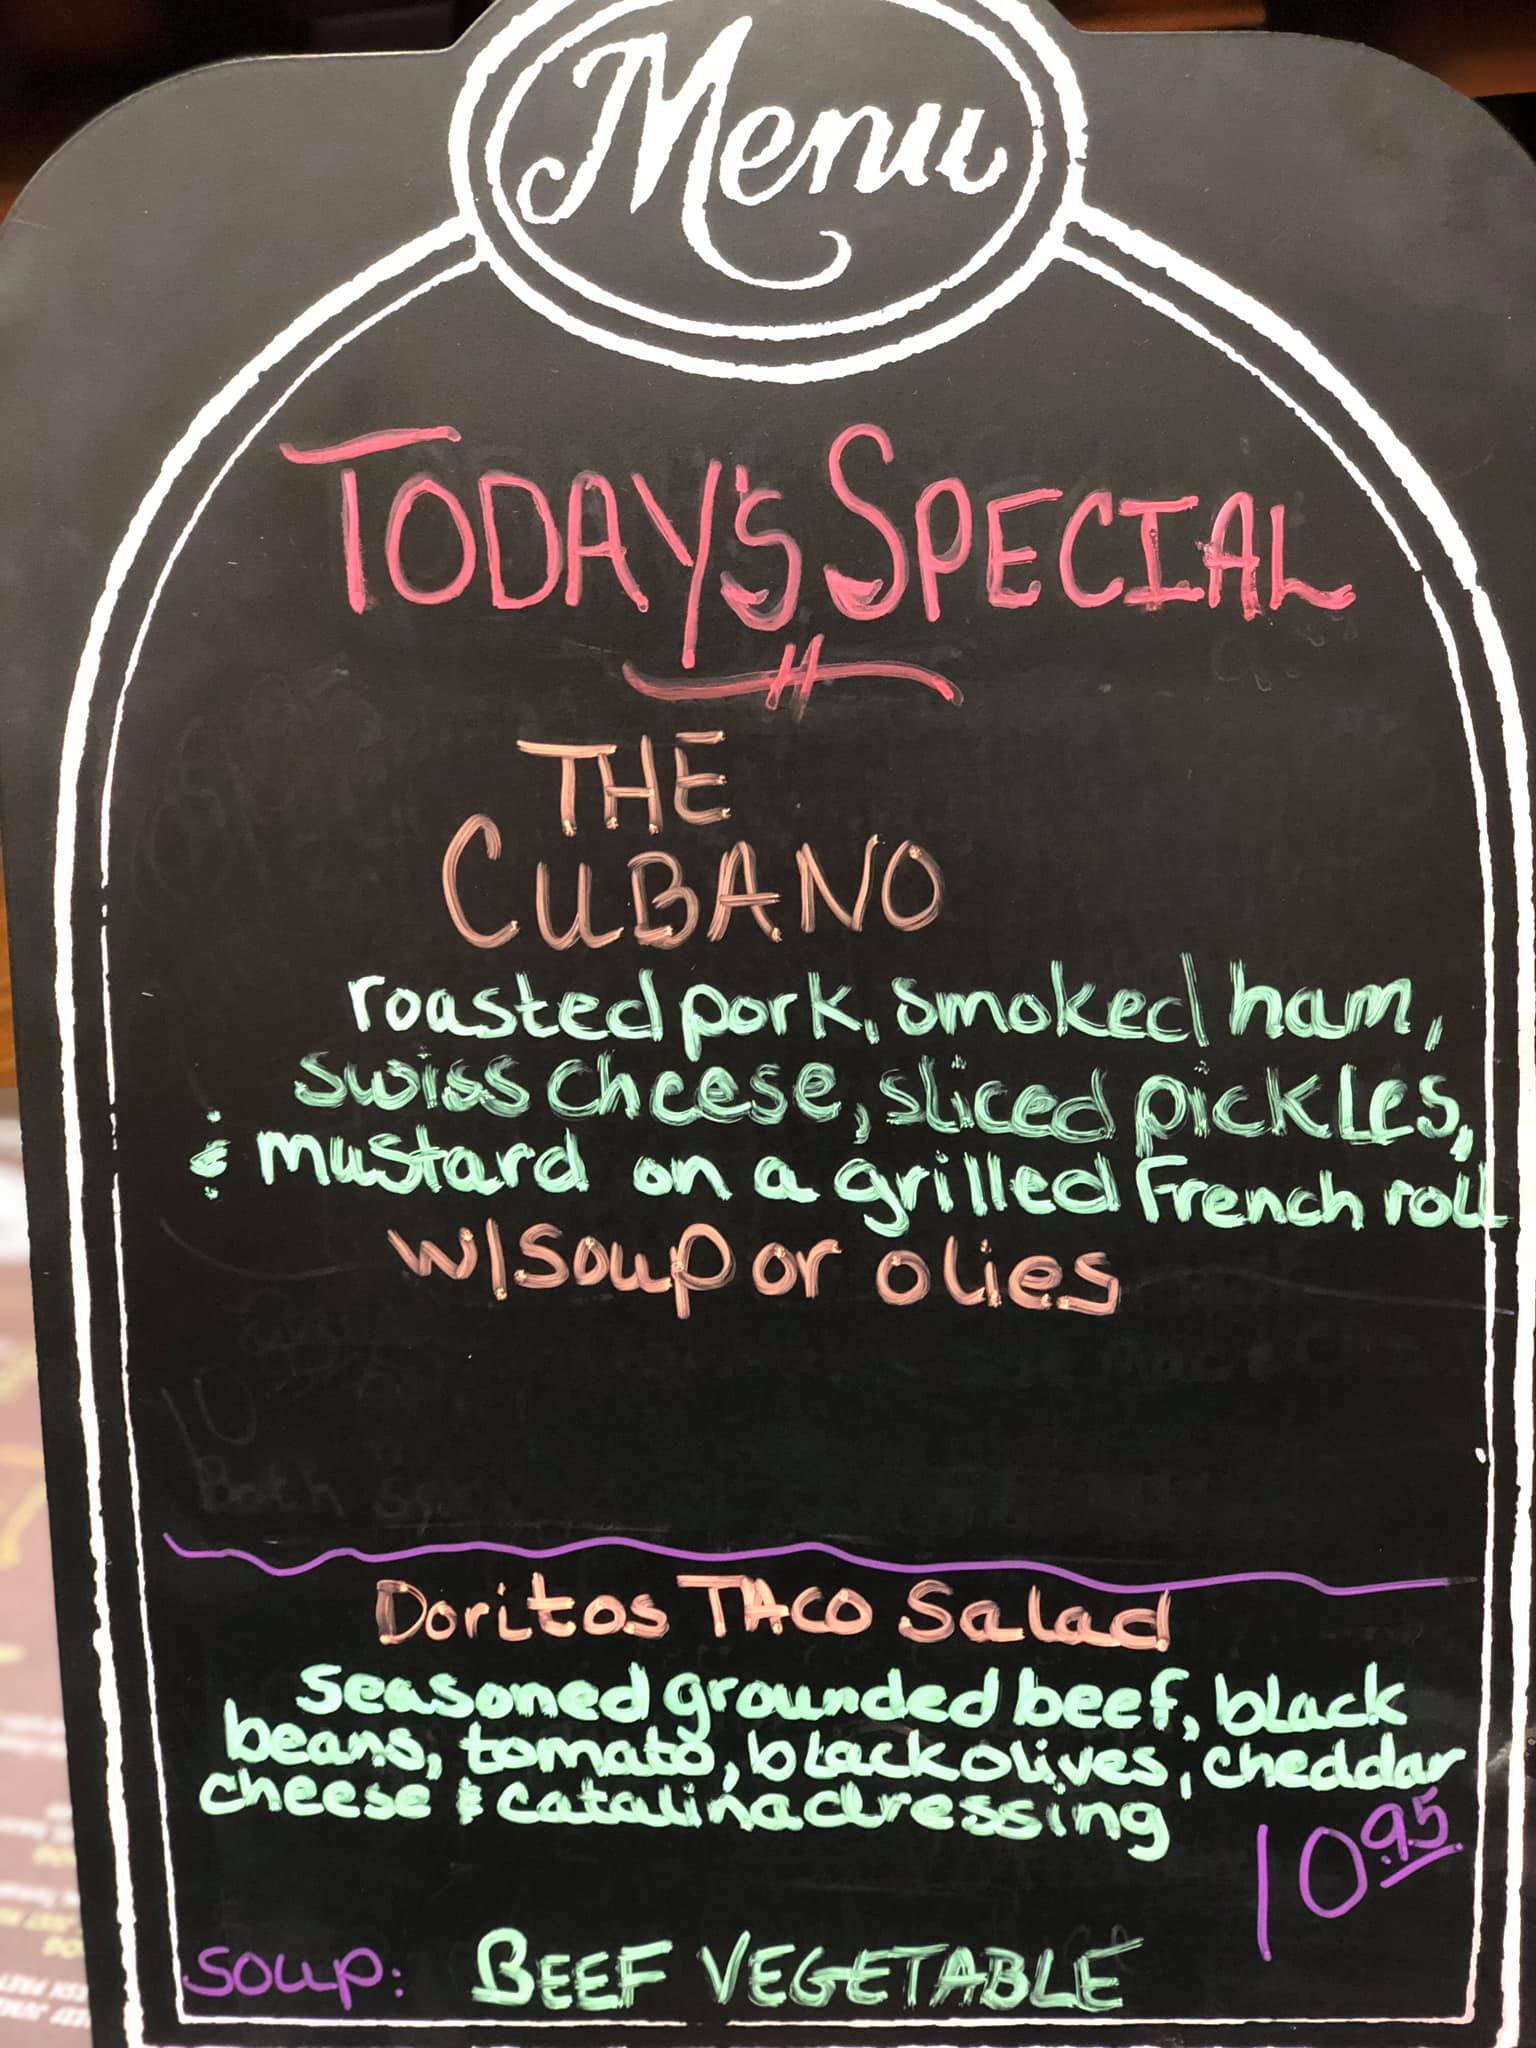 Menu
TODAY'S SPECIAL
THE
CUBANO
roasted pork, smoked ham,
swiss cheese, sliced pickles,
& mustard on a grilled French roll
w/soup or olies
Doritos TACO Salad
seasoned grounded beef, black
beans, tomato, black olives, cheddar
cheese & catalina dressing
10.95
soup: BEEF VEGETABLE